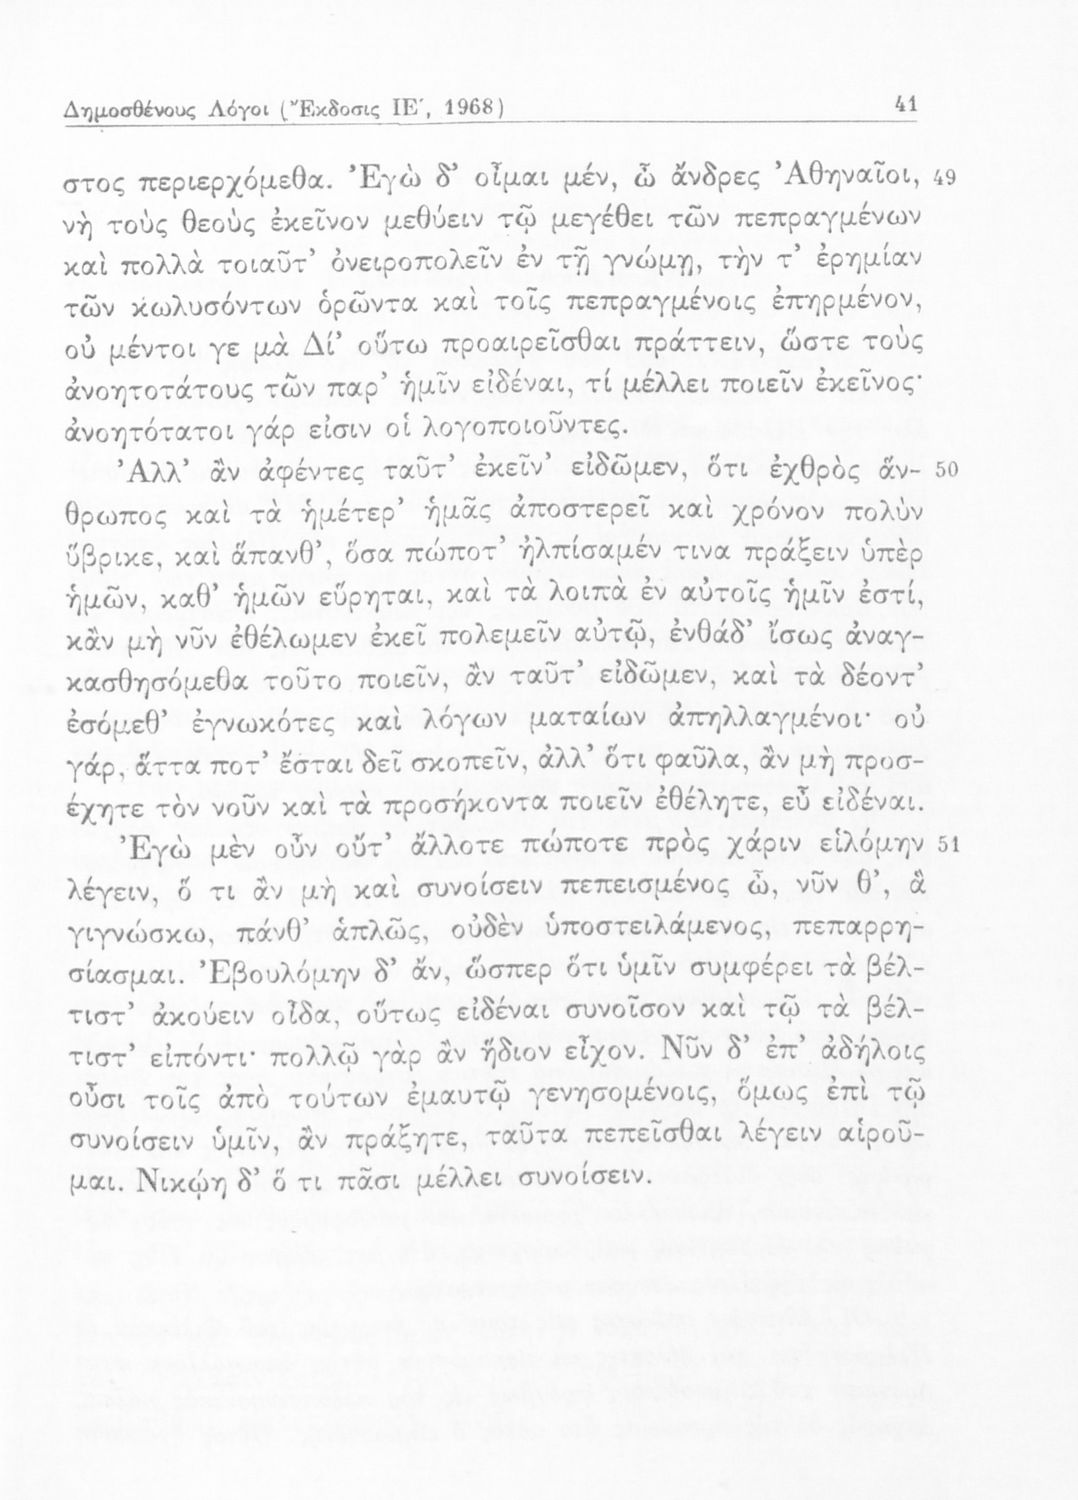 Δημοσθένους Λόγοι (Ἔκδοσις ΙΕ΄, 1968) 41
στος περιερχόμεθα. Ἐγὼ δ’ οἶμαι μέν, ὦ ἄνδρες Ἀθηναῖοι, 49
νὴ τοὺς θεοὺς ἐκεῖνον μεθύειν τῷ μεγέθει τῶν πεπραγμένων
καὶ πολλὰ τοιαῦτ’ ὀνειροπολεῖν ἐν τῇ γνώμῃ, τὴν τ’ ἐρημίαν
τῶν κωλυσόντων ὁρῶντα καὶ τοῖς πεπραγμένοις ἐπηρμένον,
οὐ μέντοι γε μὰ Δί’ οὕτω προαιρεῖσθαι πράττειν, ὥστε τοὺς
ἀνοητοτάτους τῶν παρ’ ἡμῖν εἰδέναι, τί μέλλει ποιεῖν ἐκεῖνος·
ἀνοητότατοι γάρ εἰσιν οἱ λογοποιοῦντες.
Ἀλλ’ ἂν ἀφέντες ταῦτ’ ἐκεῖν’ εἰδῶμεν, ὅτι ἐχθρὸς ἅν- 50
θρωπος καὶ τὰ ἡμέτερ’ ἡμᾶς ἀποστερεῖ καὶ χρόνον πολὺν
ὕβρικε, καὶ ἅπανθ’, ὅσα πώποτ’ ἠλπίσαμέν τινα πράξειν ὑπὲρ
ἡμῶν, καθ’ ἡμῶν εὕρηται, καὶ τὰ λοιπὰ ἐν αὐτοῖς ἡμῖν ἐστί,
κἂν μὴ νῦν ἐθέλωμεν ἐκεῖ πολεμεῖν αὐτῷ, ἐνθάδ’ ἴσως ἀναγ-
κασθησόμεθα τοῦτο ποιεῖν, ἂν ταῦτ’ εἰδῶμεν, καὶ τὰ δέοντ’
ἐσόμεθ’ ἐγνωκότες καὶ λόγων ματαίων ἀπηλλαγμένοι· οὐ
γάρ, ἅττα ποτ’ ἔσται δεῖ σκοπεῖν, ἀλλ’ ὅτι φαῦλα, ἂν μὴ προσ-
έχητε τὸν νοῦν καὶ τὰ προσήκοντα ποιεῖν ἐθέλητε, εὖ εἰδέναι.
Ἐγὼ μὲν οὖν οὔτ’ ἄλλοτε πώποτε πρὸς χάριν εἱλόμην 51
λέγειν, ὅ τι ἂν μὴ καὶ συνοίσειν πεπεισμένος ὦ, νῦν θ’, ἃ
γιγνώσκω, πάνθ’ ἁπλῶς, οὐδὲν ὑποστειλάμενος, πεπαρρη-
σίασμαι. Ἐβουλόμην δ’ ἄν, ὥσπερ ὅτι ὑμῖν συμφέρει τὰ βέλ-
τιστ’ ἀκούειν οἶδα, οὕτως εἰδέναι συνοῖσον καὶ τῷ τὰ βέλ-
τιστ’ εἰπόντι· πολλῷ γὰρ ἂν ἥδιον εἶχον. Νῦν δ’ ἐπ’ ἀδήλοις
οὖσι τοῖς ἀπὸ τούτων ἐμαυτῷ γενησομένοις, ὅμως ἐπὶ τῷ
συνοίσειν ὑμῖν, ἂν πράξητε, ταῦτα πεπεῖσθαι λέγειν αἱροῦ-
μαι. Νικῴη δ’ ὅ τι πᾶσι μέλλει συνοίσειν.